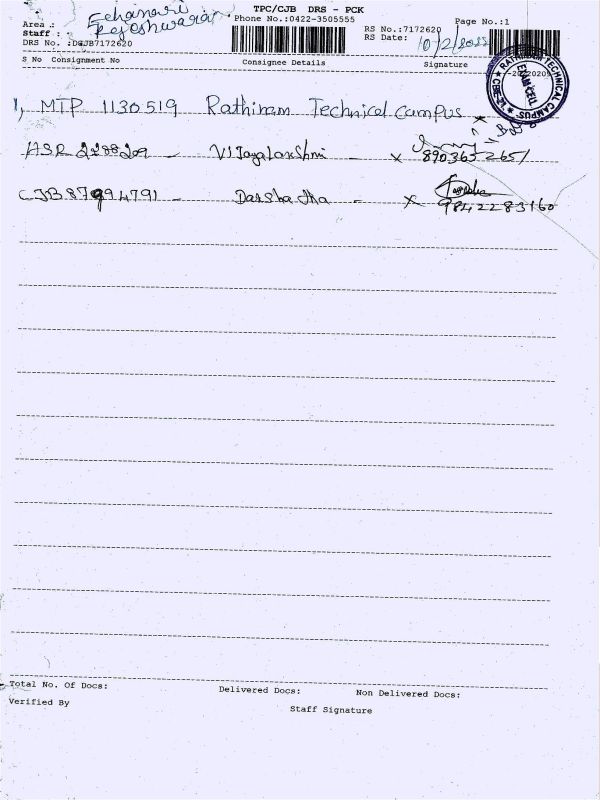 TPC/CJB DRS - PCK
Phone No.:0422-3505555
Page No.:1
Area : Echanari
Staff : Rajeshwaran
DRS No. :DCJB7172620
RS No.:7172620
RS Date: 10/2/2022
S No Consignment No Consignee Details Signature
1, MTP 1130519 Rathinam Technical campus
RATHINAM TECHNICAL CAMPUS
EXAM CELL
CBE-21
HSR 2288209 - VIJayalakshmi - x 8903652651
CJB 87994791 - Darsha - x 9842283160
Total No. Of Docs: Delivered Docs: Non Delivered Docs:
Verified By Staff Signature